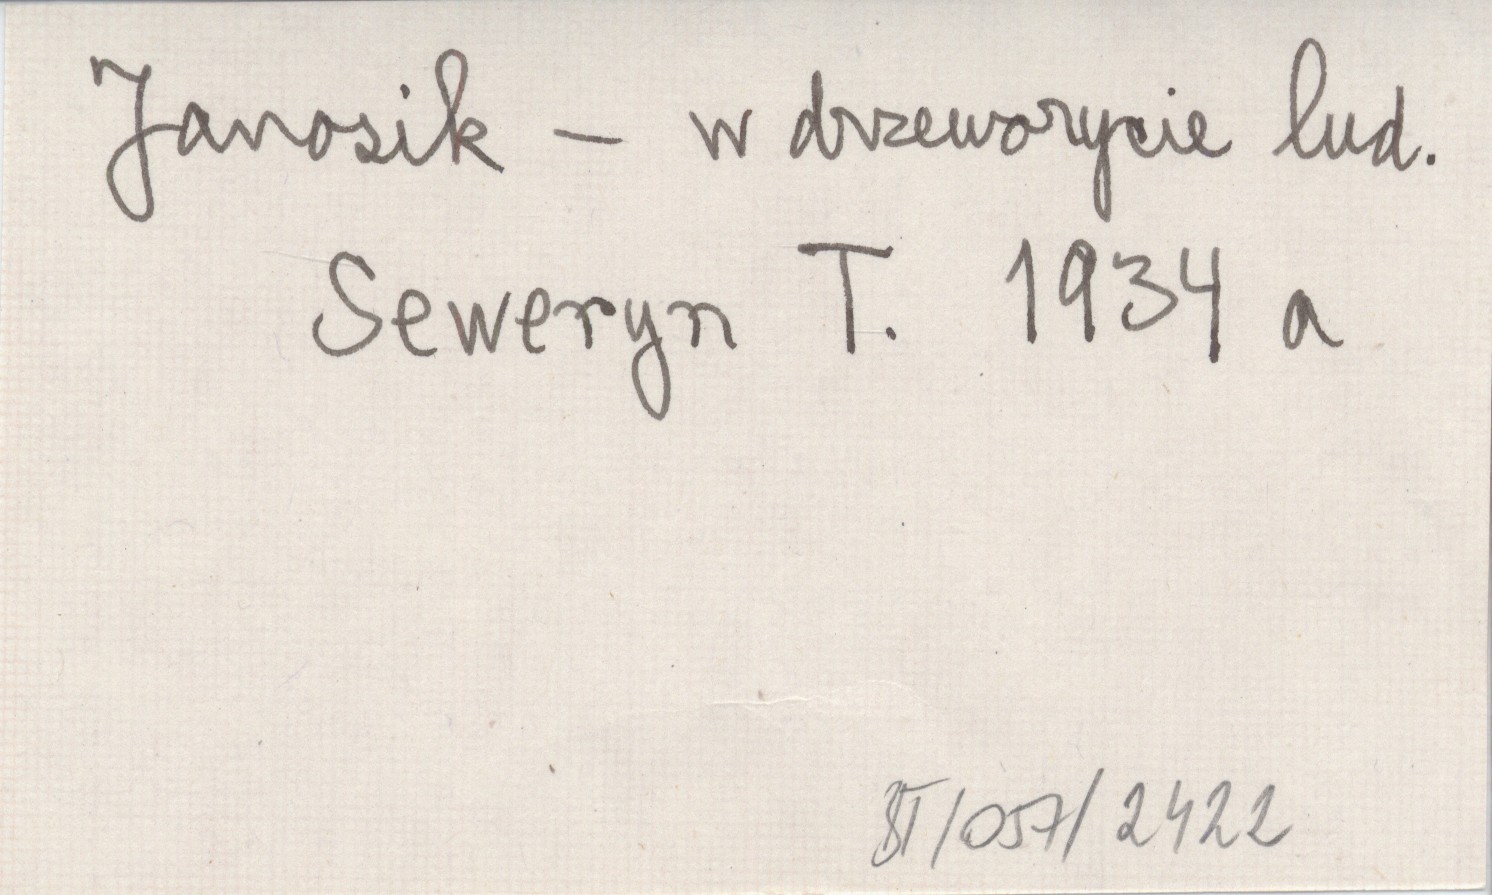 Janosik – w drzeworycie lud.
Seweryn T. 1934 a
BT/057/2422